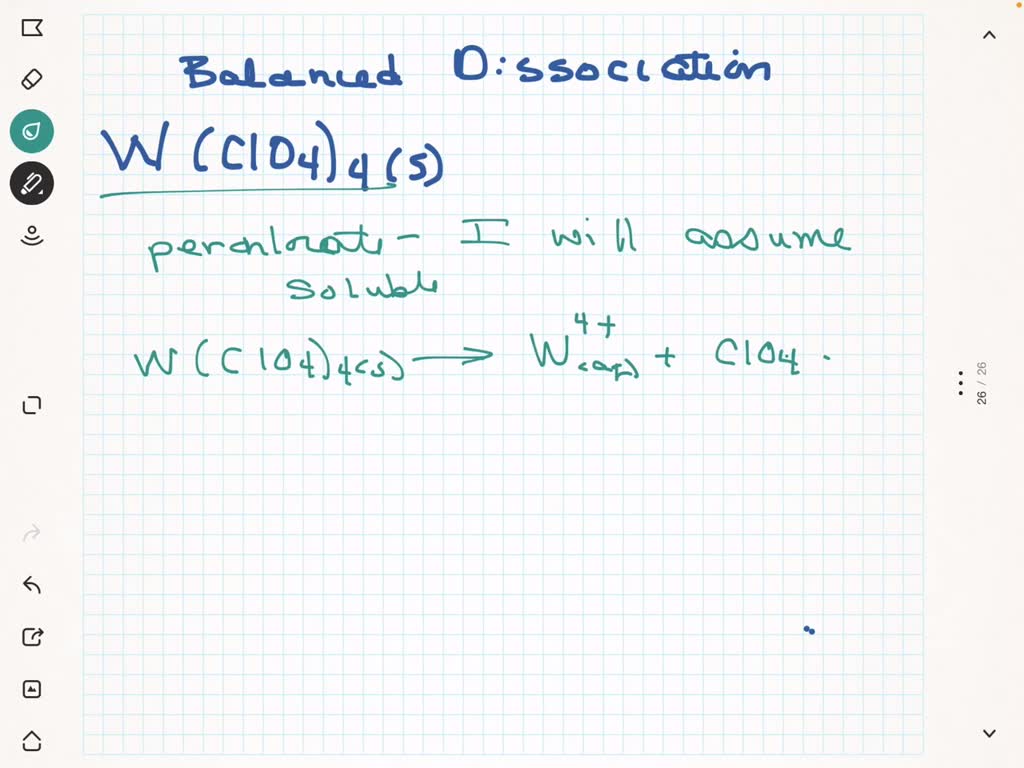 Balanced Dissociation
W(ClO4)4(s)
perchlorate - I will assume
soluble
W(ClO4)4(s) → W4+(aq) + ClO4
26 / 26